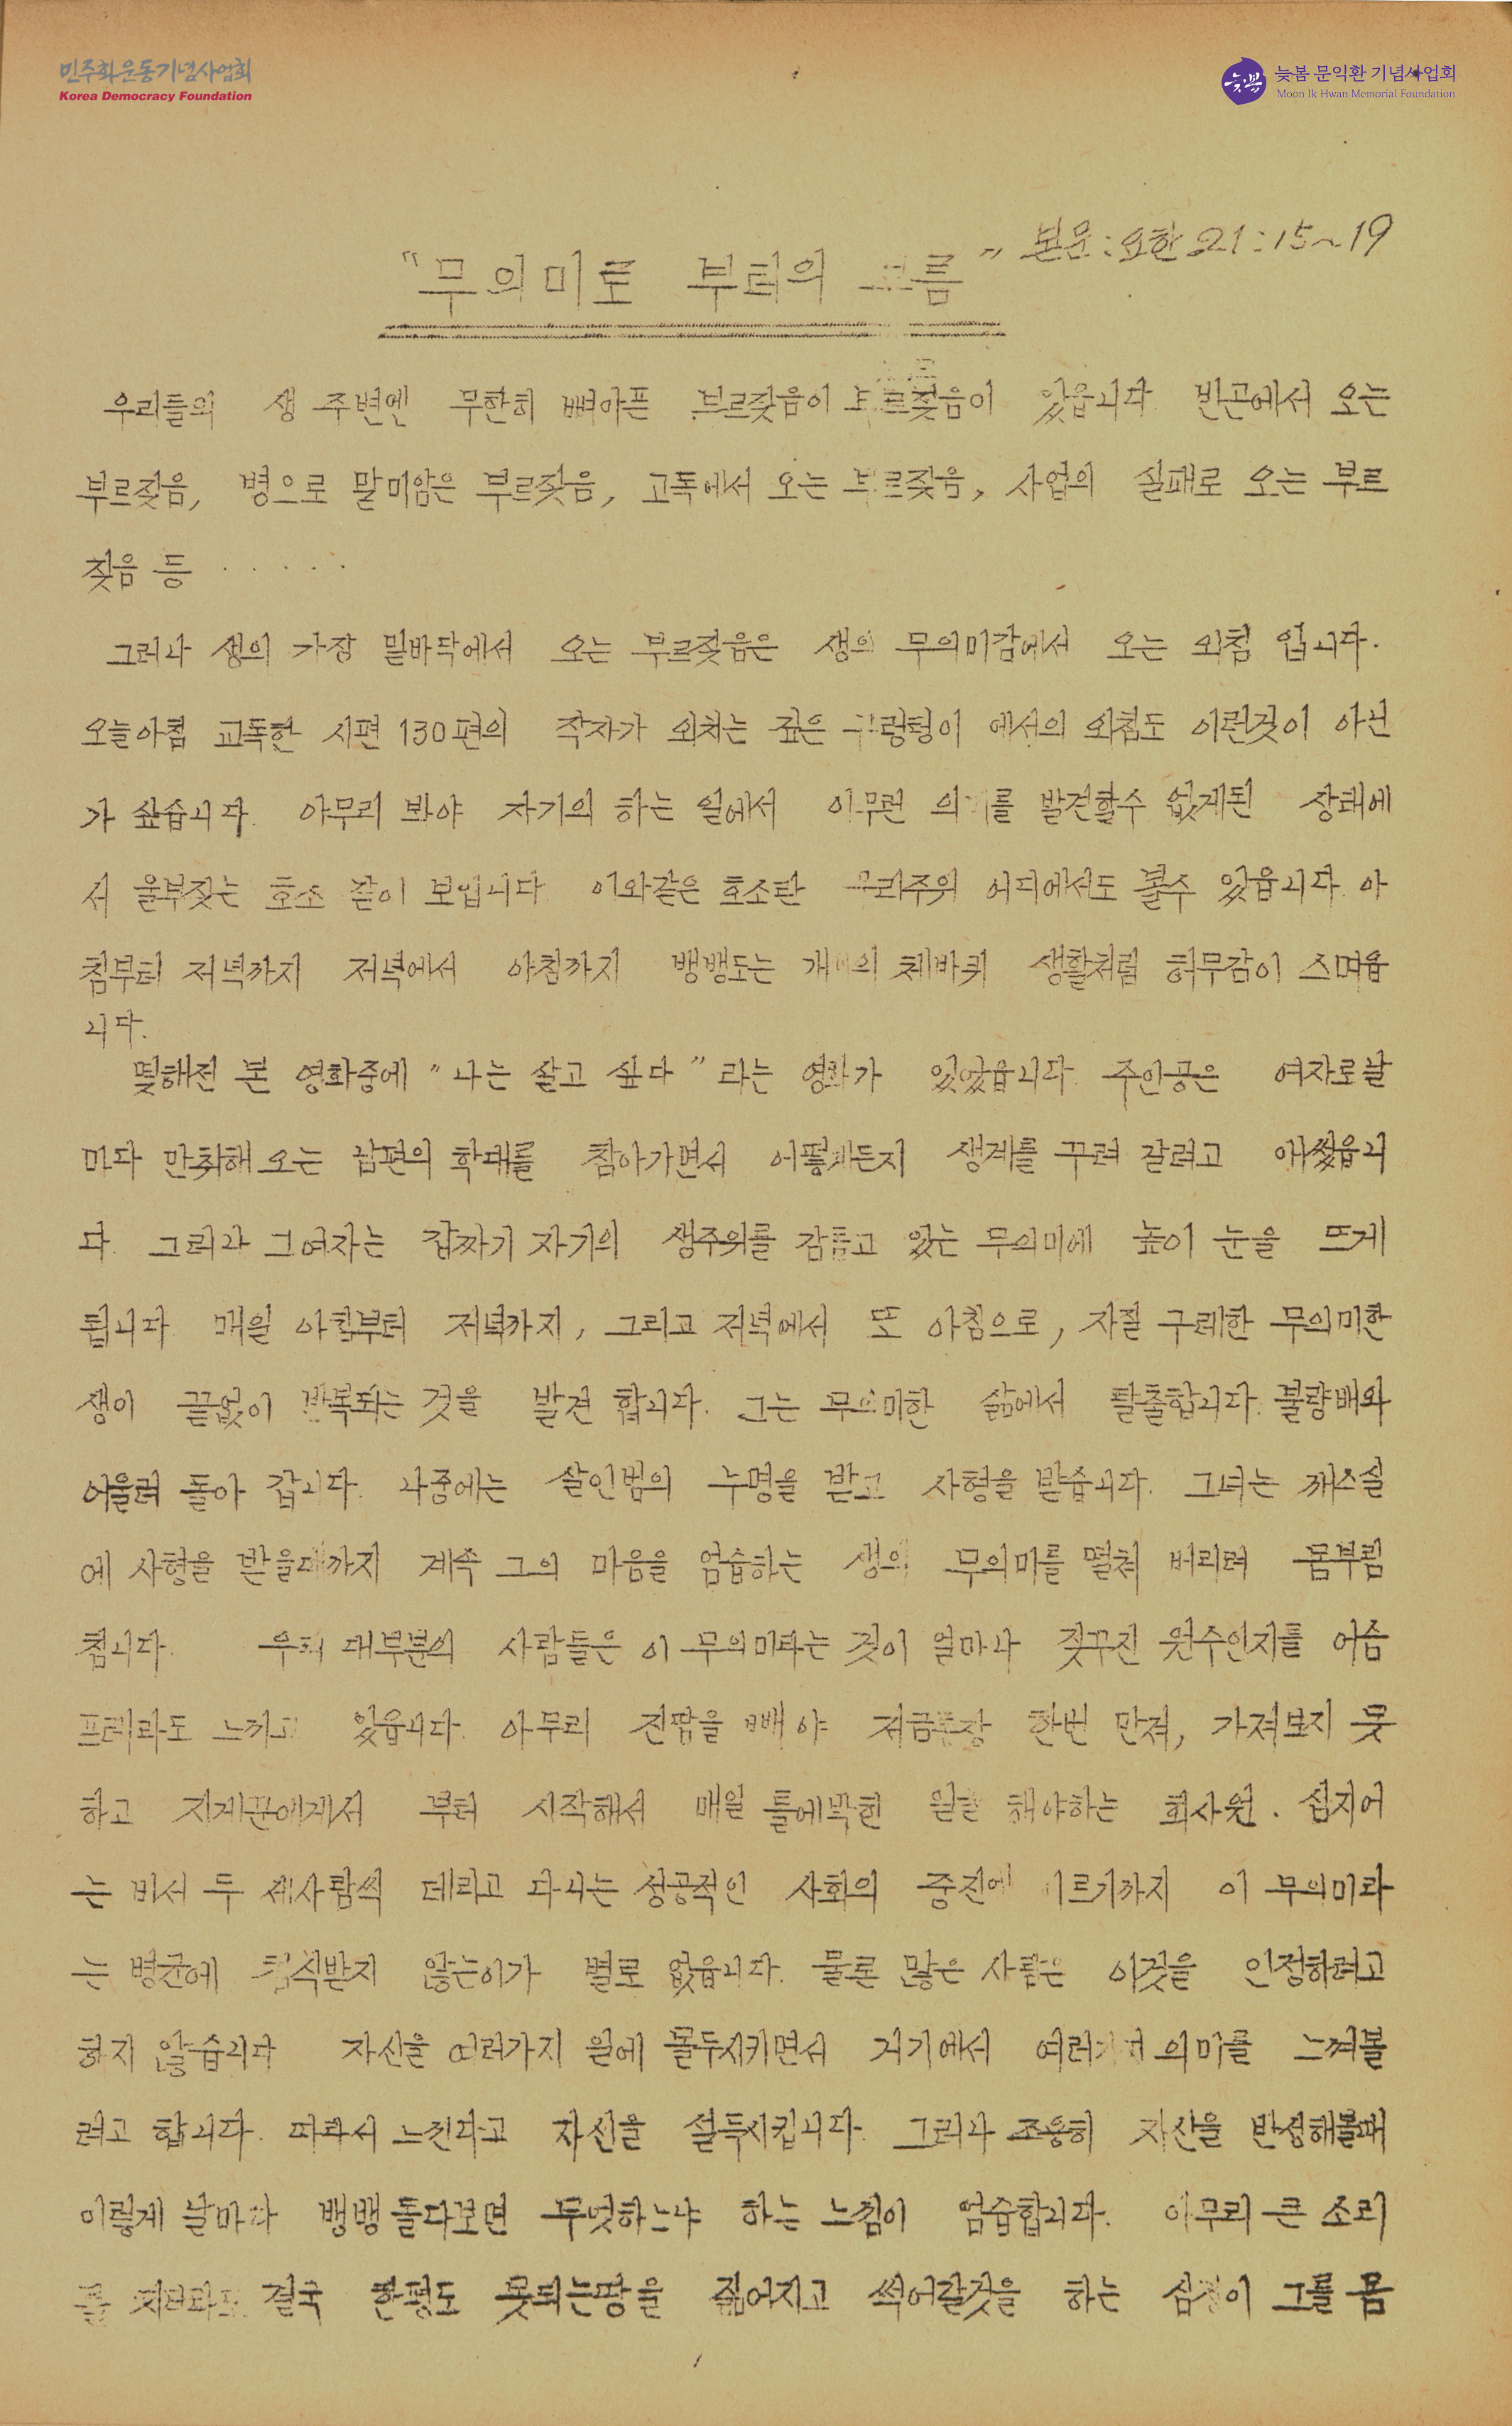 민주화운동기념사업회
Korea Democracy Foundation
늦봄
늦봄 문익환 기념사업회
Moon Ik Hwan Memorial Foundation
본문 : 요한 21:15~19
"무의미로 부터의
우리들의 생 주변엔 무한히 뼈아픈 부르짖음이 부르짖음이 있읍니다. 빈곤에서 오는
부르짖음, 병으로 말미암은 부르짖음, 고독에서 오는 부르짖음, 사업의 실패로 오는 부르
짖음 등 ·····
그러나 생의 가장 밑바닥에서 오는 부르짖음은 생의 무의미감에서 오는 외침 입니다.
오늘아침 교독한 시편 130편의 작자가 외치는 깊은 구렁텅이 에서의 외침도 이런것이 아닌
가 싶습니다. 아무리 봐야 자기의 하는 일에서 아무런 의미를 발견할수 없게된 상태에
서 울부짖는 호소 같이 보입니다. 이와같은 호소란 우리주위 어디에서도 볼수 있읍니다. 아
침부터 저녁까지 저녁에서 아침까지 뱅뱅도는 체바퀴 생활처럼 허무감이 스며옵
니다.
몇해전 본 영화중에 "나는 살고 싶다" 라는 영화가 있었읍니다. 주인공은 여자로 날
마다 만취해 오는 남편의 학대를 참아가면서 어떻게든지 생계를 꾸려 갈려고 애썼읍니
다. 그러나 그여자는 갑짜기 자기의 생주위를 감돌고 있는 무의미에 높이 눈을 뜨게
됩니다. 매일 아침부터 저녁까지, 그리고 저녁에서 또 아침으로, 자질 구레한 무의미한
생이 끝없이 반복되는 것을 발견 합니다. 그는 무의미한 삶에서 탈출합니다. 불량배와
어울려 돌아 갑니다. 나중에는 살인범의 누명을 받고 사형을 받습니다. 그녀는 깨스실
에 사형을 받을때까지 계속 그의 마음을 엄습하는 생의 무의미를 떨쳐 버리려 몸부림
칩니다. 우리 대부분의 사람들은 이 무의미라는 것이 얼마나 짖꾸진 원수인지를 어슴
프레라도 느끼고 있읍니다. 아무리 진땀을 빼야 저금통장 한번 만져, 가져보지 못
하고 지게꾼에게서 부터 시작해서 매일 틀에박힌 일을 해야하는 회사원. 심지어
는 비서 두 세사람씩 데리고 다니는 성공적인 사회의 중진에 이르기까지 이 무의미라
는 병균에 침식받지 않는이가 별로 없읍니다. 물론 많은 사람은 이것을 인정하려고
하지 않습니다. 자신을 여러가지 일에 몰두시키면서 거기에서 여러가지 의미를 느껴볼
려고 합니다. 따라서 느낀다고 자신을 설득시킵니다. 그러나 조용히 자신을 반성해볼때
이렇게 날마다 뱅뱅 돌다보면 무엇하느냐 하는 느낌이 엄습합니다. 아무리 큰 소리
를 결국 한평도 못되는땅을 짊어지고 썩어갈것을 하는 심정이 그를 몸